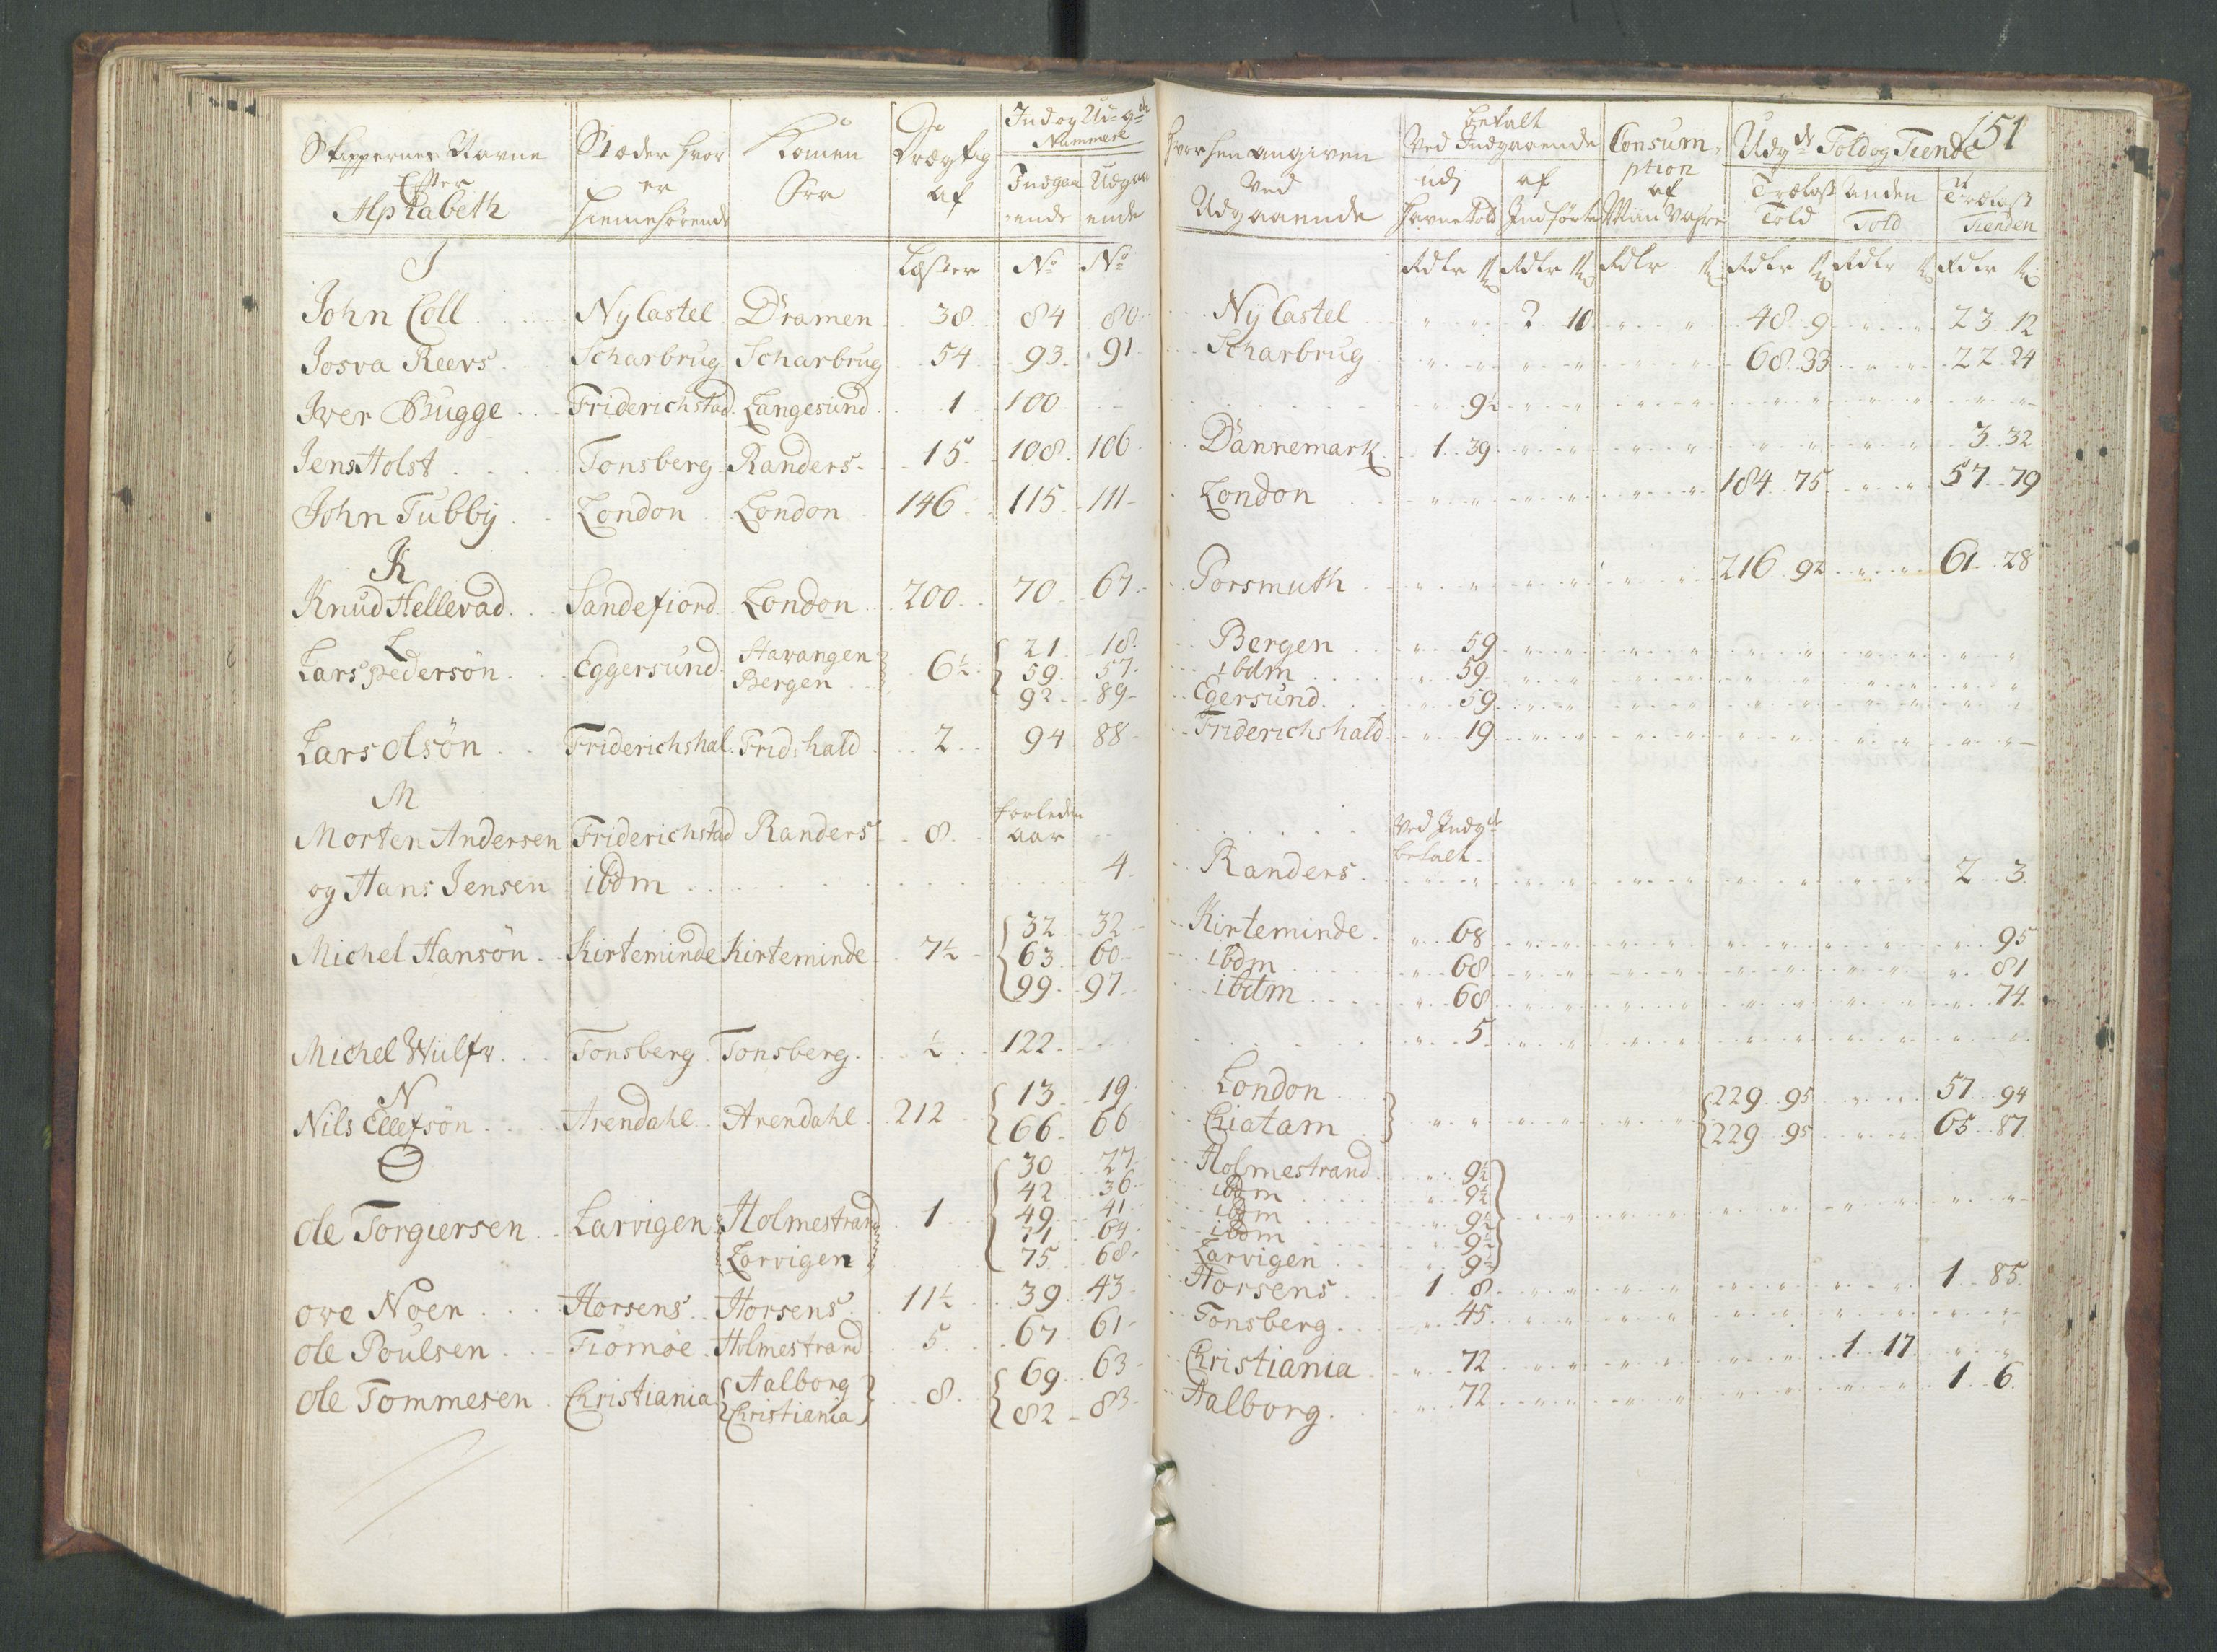 151
Skippernes Navne Efter Alphabeth | Stæder hvor er hiemehørende | Komen Fra | Drægtig af | Ind og Udg Nummere | Indgaaende | Udgaaende | hvorhen angiven Ved Udgaaende | betalt Ved Indgaaende | udj havne Told | af Indførte | Consumption af | Udg Told og Tiende | Trælast Told | Anden Told | Trælast Tienden
I | Læster | No | No | Rdlr | Rdlr | Rdlr | Rdlr | Rdlr | Rdlr
John Coll | Ny Castel | Dramen | 38 | 84 | 80 | Ny Castel | 2 10 | 48 9 | 23 12
Josva Reevs | Scharbrug | Scharbrug | 54 | 93 | 91 | Scharbrug | 68 33 | 22 24
Iver Bugge | Friderichstad | Langesund | 1 | 100 | 9½
Jens Holst | Tonsberg | Randers | 15 | 108 | 106 | Dannemark | 1 39 | 3 32
John Tubby | London | London | 146 | 115 | 111 | London | 184 75 | 57 79
K
Knud Hellevad | Sandefiord | London | 200 | 70 | 67 | Porsmuth | 216 92 | 61 28
L
Lars Pedersön | Eggersund | Stavangen Bergen | 6½ | 21 | 18 | Bergen | 59
59 | 57 | ibdm | 59
92 | 89 | Egersund | 59
Lars olsön | Friderichshal | Frid: hald | 2 | 94 | 88 | Friderichshald | 19
M
Morten Andersen | Friderichstad | Randers | 8 | forleden aar | Ved Indg betalt
og Hans Jensen | ibdm | 4 | Randers | 2 3
Michel Hansön | Kirteminde | Kirteminde | 7½ | 32 | 32 | Kirteminde | 68 | 95
63 | 60 | ibdm | 68 | 81
99 | 97 | ibdm | 68 | 74
Michel Wulfr | Tonsberg | Tonsberg | ½ | 122 | 5
N
Nils Ellefsön | Arendahl | Arendahl | 212 | 13 | 19 | London | 229 95 | 57 94
66 | 66 | Chiatam | 229 95 | 65 87
O
30 | 27 | Holmestrand | 9½
42 | 36 | ibdm | 9½
Ole Torgiersen | Larvigen | Holmestrand | 1 | 49 | 41 | ibdm | 9½
71 | 64 | ibdm | 9½
Larvigen | 75 | 68 | Larvigen | 9½
ove Noen | Horsens | Horsens | 11½ | 39 | 43 | Horsens | 1 8 | 1 85
ole Poulsen | Tiömöe | Holmestrand | 5 | 67 | 61 | Tonsberg | 45
Ole Tommesen | Christiania | Aalborg | 8 | 69 | 63 | Christiania | 72 | 1 17
Christiania | 82 | 83 | Aalborg | 72 | 1 6